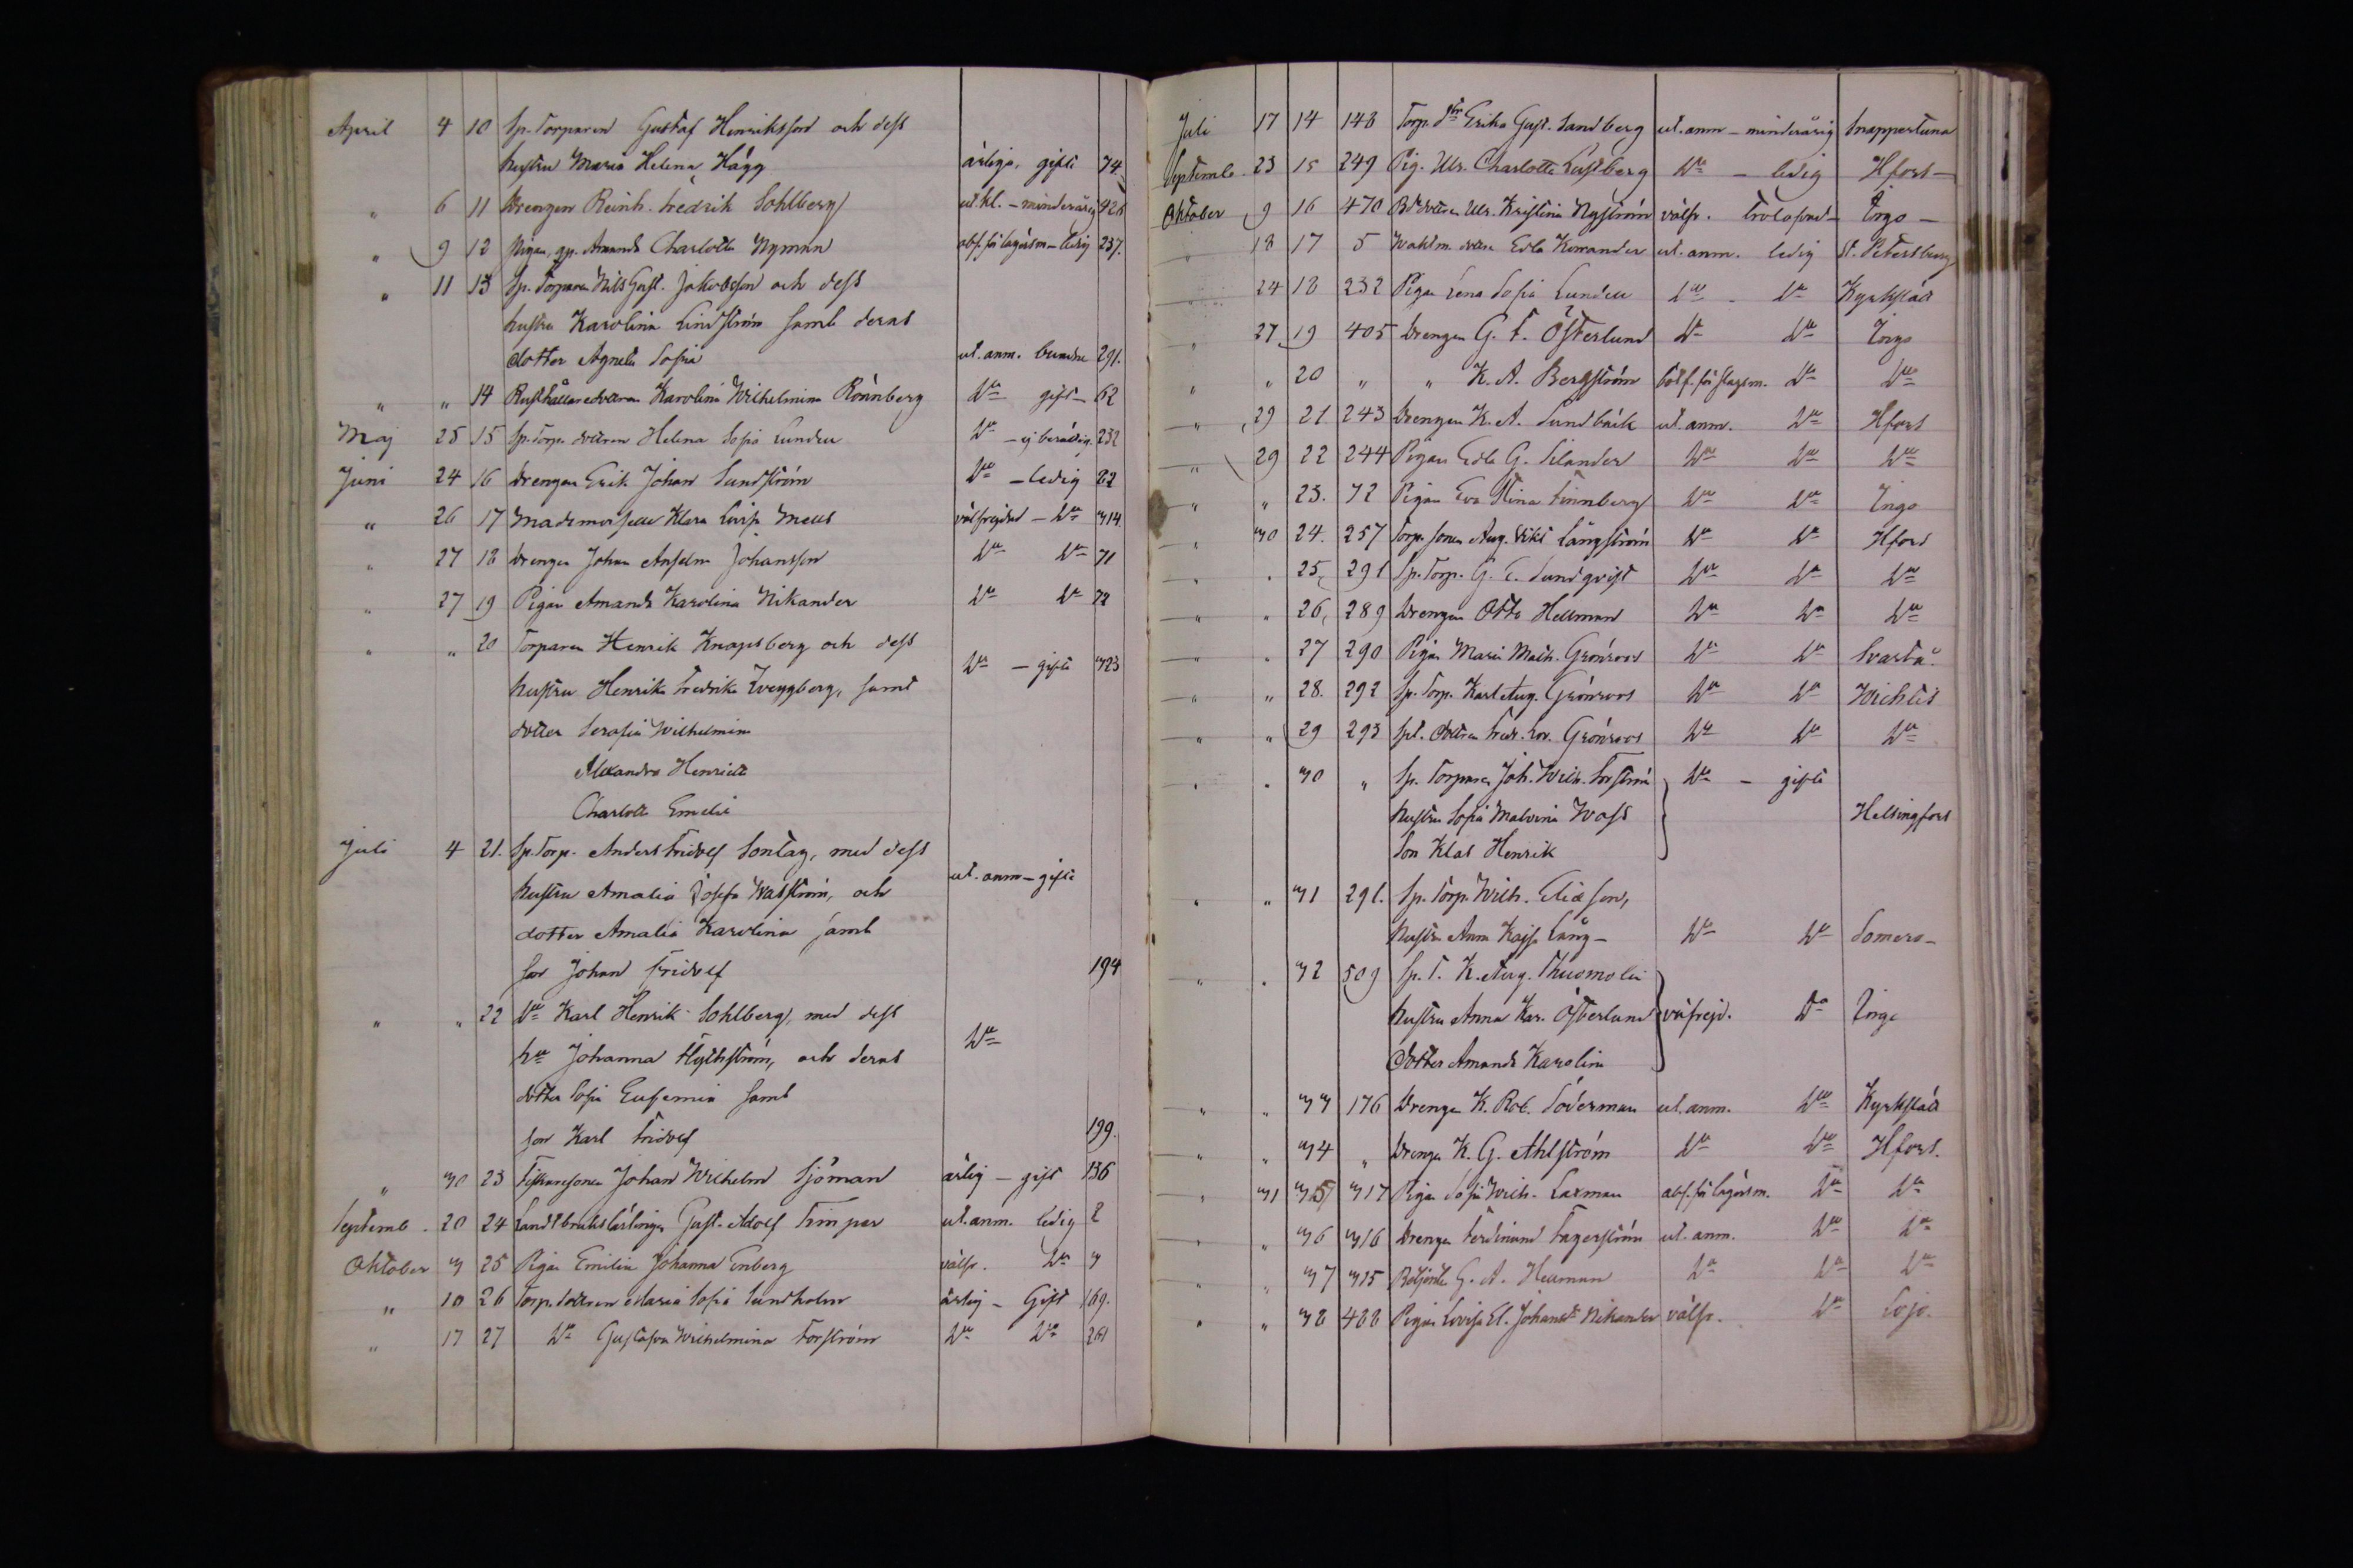 April 4 10 Sp. Torparen Gustaf Henriksson och dess
hustru Maria Helena Hägg ärliga, gifte 74.
" 6 11 Drengen Reinh. Fredrik Sohlberg ut.kl. – minderårig 426
" 9 12 Pigan, Amanda Charlotta Nyman abs. för lägersm – ledig 237.
" 11 13 Sp. Torparen Nils Gust. Jakobsson och dess
hustru Karolina Lindström samt deras
dotter Agneta Sofia ut. anm. 291.
" " 14 Rusthållaredottren Karolina Wilhelmina Rönnberg Do gift – 62
Maj 25 15 Sp. Torp. dottren Helena Sofia Lundell Do – ej berättig. 232
Juni 24 16 Drengen Erik Johan Sundström Do – ledig 82
" 26 17 Mademoiselle Klara Lovisa Mells välfrejdad – Do 314
" 27 18 Drengen Johan Anselm Johansson Do Do 71
" 27 19 Pigan Amanda Karolina Nikander Do Do 72
" " 20 Torparen Henrik Knapsberg och dess
Do – gifte 323
hustru Henrika Fredrika Tvengberg, samt
dotter Serafia Wilhelmina
Alexandra Henrietta
Charlotta Emelie
Juli 4 21. Sp. Torp. Anders Fridolf Sontag, med dess
ut. anm – gifte
hustru Amalia Josefa Wasström, och
dotter Amalia Karolina samt
son Johan Fridolf 194
" " 22 Do Karl Henrik Sohlberg, med dess
Do
hu Johanna Flythström, och deras
dotter Sofia Eufemia samt
son Karl Fridolf 199.
" 30 23 Fiskaresonen Johan Wilhelm Sjöman ärlig – gift 136
Septemb. 20 24 Landtbrukslärlingen Gust. Adolf Timper ut. anm. ledig 2
Oktober 3 25 Pigan Emilia Johanna Enberg välfr. Do 3
" 10 26 Torp. dottren Maria Sofia Sundholm ärlig – Gift 169.
" 17 27 Do Gustafva Wilhelmina Forström Do Do 261
Juli 17 14 148 Torp. dtr Erika Gust. Sandberg ut. anm – minderårig Snappertuna
Septemb. 23 15 249 Pig. Ulr. Charlotta Lustberg Do – ledig Hfors –
Oktober 9 16 470 Bd dottren Ulr. Kristina Nyström välfr. trolofvad – Ingo –
" 18 17 5 Waktm. dottren Edla Komander ut. anm. ledig St. Petersburg
" 24 18 232 Pigan Lena Sofia Lundell Do – Do Kyrkslätt
" 27 19 405 Drengen G. F. Österlund Do Do Ingo
" " 20 " " K. A. Bergström Do Do
" 29 21 243 Drengen K. A. Sundbäck ut. anm. Do Hfors
" 29 22 244 Pigan Edla G. Silander Do Do Do
" " 23. 72 Pigan Eva Stina Finnberg Do Do Ingo
" 30 24. 257 Torp. sonen Aug. Vikt. Långström Do Do Hfors
" " 25, 291 Sp. Torp. G. E. Sundqvist Do Do Do
" " 26, 289 Drengen Otto Hellman Do Do Do
" " 27 290 Pigan Maria Math. Grönroos Do Do Svartå.
" " 28. 292 Sp. Torp. Karl Aug. Grönroos Do Do Wichtis
" " 29 293 Spt. dottren Fredr. Lov. Grönroos Do Do Do
" " 30 " Sp. Torparen Joh. Wilh. Forström Do – gifte
hustru Sofia Malvina Wass Helsingfors
Son Klas Henrik
" " 31 291. Sp. Torp. Wilh. Eliasson,
hustru Anna Kajsa Lång – Do Do Somero –
" " 32 509 Sp. T. K. Aug. Thuomola
hustru Anna Kar. Österlund välfrejd. Do Ingo
dotter Amanda Karolina
" " 33 176 Drengen K. Rob. Söderman ut. anm. Do Kyrkslätt
" " 34 " Drengen K. G. Ahlström Do Do Hfors.
" 31 35 317 Pigan Sofia Wilh. Laxman abs. för lägersm. Do Do
" " 36 316 Drengen Ferdinand Fagerström ut. anm. Do Do
" " 37 315 G. A. Hellman Do Do Do
" " 38 488 Pigan Lovisa El. Johansdr Nikander välfr. Do Lojo.